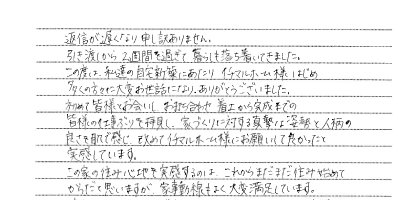 返信が遅くなり申し訳ありません。
引き渡しから2週間を過ぎて暮らしも落ち着いてきました。
この度は、私達の自宅新築にあたり イチマルホーム様はじめ
多くの方々に大変お世話になり、ありがとうございました。
初めて皆様とお会いし お打ち合せ 着工から完成までの
皆様の仕事ぶりを拝見し、家づくりに対する真摯な姿勢と人柄の
良さを肌で感じ、改めてイチマルホーム様にお願いして良かったと
実感しています。
この家の住み心地を実感するのは、これからまだまだ住み始めて
からだと思いますが、家事動線もよく大変満足しています。